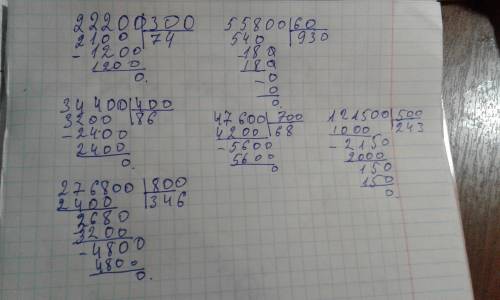 22200 300
2100 74
-1200
1200
0.
55800 60
540 930
-180
180
-0
0
0.
34400 400
3200 86
-2400
2400
0.
47600 700
4200 68
-5600
5600
0
121500 500
1000 243
-2150
2000
150
150
0.
276800 800
2400 346
2680
3200
-4800
4800
0.